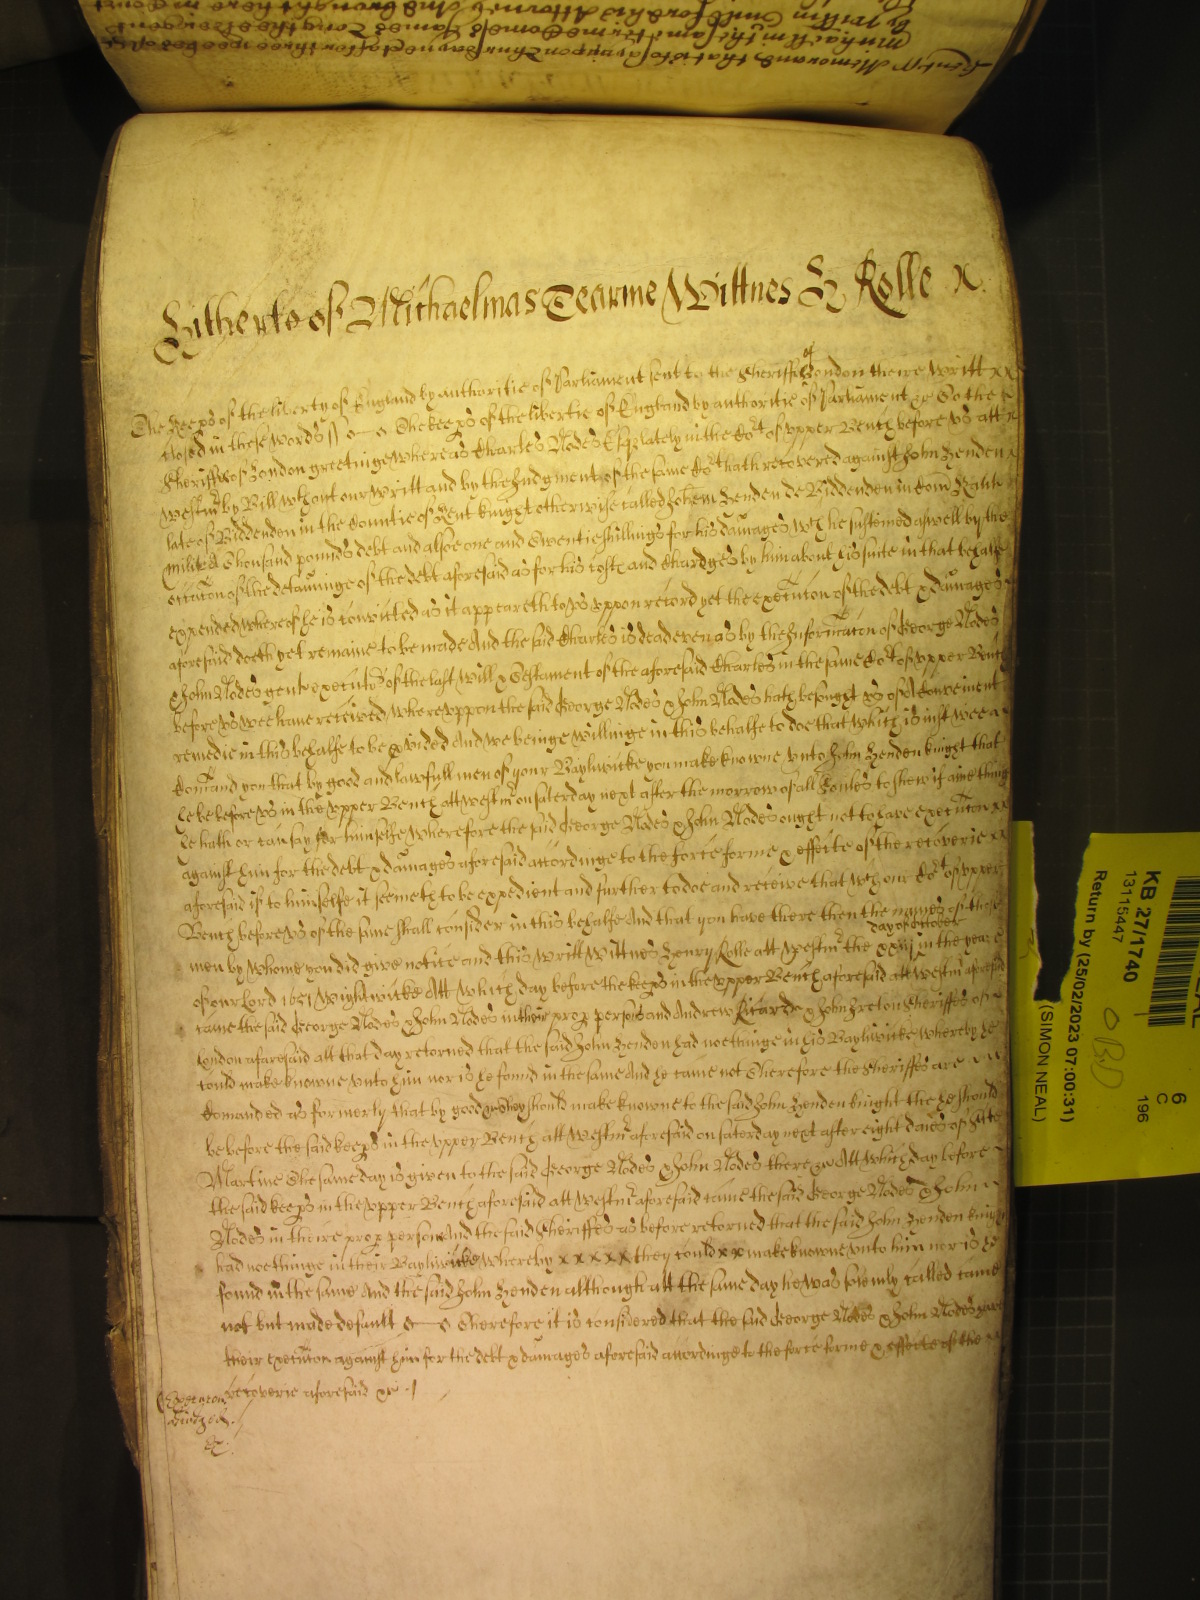 Hitherto of Michaelmas Tearme Wittnes H Rolle x
The Keeps of the liberty of England by authoritie of Parliament sent to the Sheriffes of London theire Writt xx
closed in these words ss The keeps of the libertie of England by authoritie of Parliament &c To the
Sheriffes of London greetinge Whereas Charles Nodes Esqr lately in the Cort of vpper Bench before vs att
Westmr by Bill wthout our Writt and by the Iudgment of the same Cort hath recovered against John Henden
late of Biddenden in the Countie of Kent knight otherwise called Johem Henden de Biddenden in Com
milit A Thousand pounds debt and alsoe one and Twentie shillings for his damages wch he susteined aswell by the
occacon of the detaininge of the debt aforesaid as for his costs and Chardges by him about his suite in that behalfe
expended whereof he is convicted as it appeareth to vs vppon record yet the execucon of the debt & damages
aforesaid doeth yet remaine to be made And the said Charles is dead even as by the Informacon of George Nodes
& John Nodes gent executors of the last Will & Testament of the aforesaid Charles in the same Cort of vpper Bench
before vs wee have received Wherevppon the said George Nodes & John Nodes hath besought vs of A Convenient
remedie in this behalfe to be pvided And we beinge willinge in this behalfe to doe that which is iust wee
Comand you that by good and lawfull men of your Bayliwicke you make knowne vnto John Henden knight that
he be before vs in the vpper Bench att Westmr on Saterday next after the morrow of all Soules to shew if anie thing
he hath or can say for himselfe wherefore the said George Nodes & John Nodes ought not to have execucon xx
against him for the debt & damages aforesaid accordinge to the force forme & effecte of the recoverie xx
aforesaid if to himselfe it seemeth to be expedient and further to doe and receive that wch our Cort of vpper
Bench before vs of the same shall consider in this behalfe And that you have there then the names of those
men by whome you did give notice and this writt Wittnes Henry Rolle att Westmr the xxiij day of October in the yeare
of our Lord 1651 Wightwicke Att which day before the keeps in the vpper Bench aforesaid att Westmr aforesaid
came the said George Nodes & John Nodes in their prop persons and Andrew Ricarde & John Ireton Sheriffes of
London aforesaid att that day retorned that the said John Henden had nothinge in his Bayliwicke whereby he
could make knowne vnto him nor is he found in the same And he came not Therefore the Sheriffes are
Comanded as formerly that by good &c they should make knowne to the said John Henden knight the he should
be before the said keeps in the vpper Bench att Westmr aforesaid on Saterday next after eight daies of Ste
Martine The same day is given to the said George Nodes & John Nodes there &c Att which day before
the said keeps in the vpper Bench aforesaid att Westmr aforesaid came the said George Nodes & John
Nodes in theire prop persons And the said Sheriffes as before retorned that the said John Henden knight
had nothinge in their Bayliwicke Whereby x x x x x they could x x make knowne vnto him nor is he
found in the same And the said John Henden although att the same day he was solemly called came
not but made default Therefore it is considered that the said George Nodes & John Nodes have
their execucon against him for the debt & damages aforesaid accordinge to the force forme & effecte of the
recoverie aforesaid &c
Execucon
&c
KB 27/1740
13115447
Return by (25/02/2023 07:00:31)
(SIMON NEAL)
6
C
196